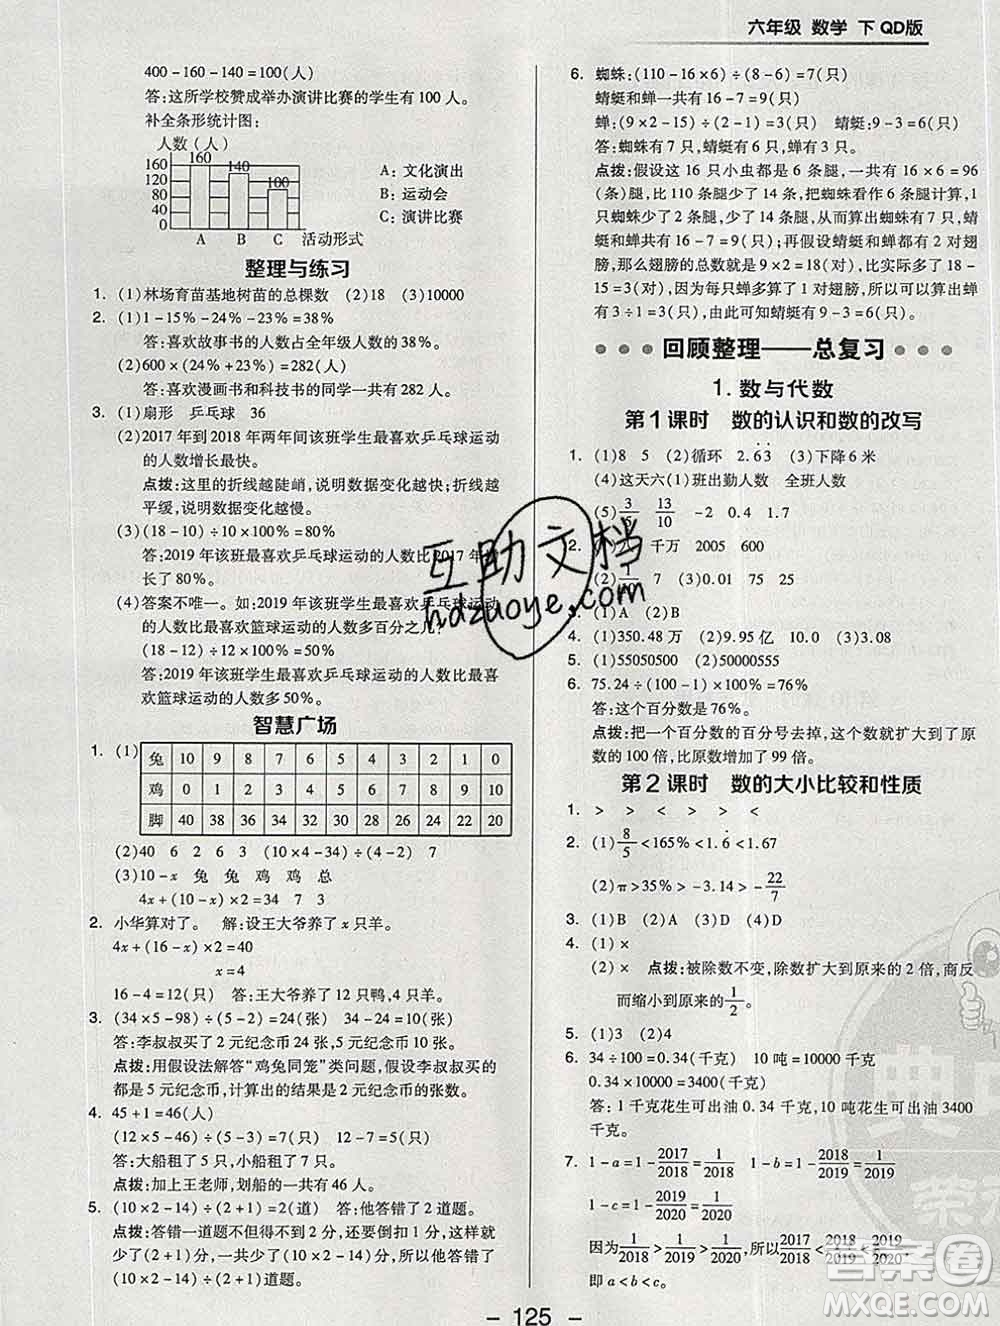 六年级 数学 下 QD版
400-160-140=100(人)
答:这所学校赞成举办演讲比赛的学生有 100 人。
补全条形统计图:
人数(人)
160
120
80
40
0
160
140
100
A B C 活动形式
A: 文化演出
B: 运动会
C: 演讲比赛
整理与练习
1. (1)林场育苗基地树苗的总棵数 (2)18 (3)10000
2. (1)1-15%-24%-23%=38%
答:喜欢故事书的人数占全年级人数的 38%。
(2)600×(24%+23%)=282(人)
答:喜欢漫画书和科技书的同学一共有 282 人。
3. (1)扇形 乒乓球 36
(2)2017 年到 2018 年两年间该班学生最喜欢乒乓球运动
的人数增长最快。
点拨:这里的折线越陡峭,说明数据变化越快;折线越
平缓,说明数据变化越慢。
(3)(18-10)÷10×100%=80%
答:2019 年该班最喜欢乒乓球运动的人数比 2017 年
长了 80%。
(4)答案不唯一。如:2019 年该班学生最喜欢乒乓球运动
的人数比最喜欢篮球运动的人数多百分之几?
(18-12)÷12×100%=50%
答:2019 年该班学生最喜欢乒乓球运动的人数比最喜
欢篮球运动的人数多 50%。
智慧广场
1. (1)
兔 10 9 8 7 6 5 4 3 2 1 0
鸡 0 1 2 3 4 5 6 7 8 9 10
脚 40 38 36 34 32 30 28 26 24 22 20
(2)40 6 2 6 3 (10×4-34)÷(4-2) 7
(3)10-x 兔 兔 鸡 鸡 总
4x+(10-x)×2=34 7 3
2. 小华算对了。 解:设王大爷养了 x 只羊。
4x+(16-x)×2=40
x=4
16-4=12(只) 答:王大爷养了 12 只鸭,4 只羊。
3. (34×5-98)÷(5-2)=24(张) 34-24=10(张)
答:李叔叔买了 2 元纪念币 24 张,5 元纪念币 10 张。
点拨:用假设法解答“鸡兔同笼”类问题,假设李叔叔买的
都是 5 元纪念币,计算出的结果是 2 元纪念币的张数。
4. 45+1=46(人)
(12×5-46)÷(5-3)=7(只) 12-7=5(只)
答:大船租了 5 只,小船租了 7 只。
点拨:加上王老师,划船的一共有 46 人。
5. (10×2-14)÷(2+1)=2(道) 答:他答错了 2 道题。
点拨:答错一道题不但得不到 2 分,还要倒扣 1 分,就比满分
少了(2+1)分,一共少了(10×2-14)分,所以他答错了
(10×2-14)÷(2+1)道题。
6. 蜘蛛:(110-16×6)÷(8-6)=7(只)
蜻蜓和蝉一共有 16-7=9(只)
蝉:(9×2-15)÷(2-1)=3(只) 蜻蜓:9-3=6(只)
答:蜘蛛有 7 只,蜻蜓有 6 只,蝉有 3 只。
点拨:假设这 16 只小虫都是 6 条腿,共有 16×6=96
(条)腿,比 110 条腿少了 14 条,把蜘蛛看作 6 条腿计算,1
只蜘蛛少了 2 条腿,14÷2=7(只),从而算出蜘蛛有 7 只,蜻
蜓和蝉共有 16-7=9(只);再假设蜻蜓和蝉都有 2 对翅
膀,那么翅膀的总数就是 9×2=18(对),比实际多了 18-15
=3(对),因为每只蝉多算了 2-1=1(对)翅膀,所以可以算出蝉
有 3÷1=3(只),故蜻蜓有 9-3=6(只)。
回顾整理——总复习
1. 数与代数
第 1 课时 数的认识和数的改写
1. (1)8 5 (2)循环 2.6̇3̇ (3)下降 6 米
(4)这天六(1)班出勤人数 全班人数
(5)3/5 13/10 -2 0.4 1.7
千万 2005 600
7 (3)0.01 75 25
(1)A (2)B
4. (1)350.48 万 (2)9.95 亿 10.0 亿
5. (1)55050500 (2)50500555
6. 75.24÷(100-1)×100%=76%
答:这个百分数是 76%。
点拨:把一个百分数的百分号去掉,这个数就扩大到了原
数的 100 倍,比原数增加了 99 倍。
第 2 课时 数的大小比较和性质
1. > > < > > <
2. (1)8/5<165%<1.6̇<1.67
(2)π>35%>-3.14>-22/7
3. (1)B (2)A (3)D (4)D
4. (1)×
(2)× 点拨:被除数不变,除数扩大到原来的 2 倍,商反
而缩小到原来的1/2。
5. (1)3 (2)4
6. 34÷100=0.34(千克) 10 吨=10000 千克
0.34×10000=3400(千克)
答:1 千克花生可出油 0.34 千克,10 吨花生可出油 3400
千克。
7. 1-a=1-2017/2018=1/2018 1-b=1-2018/2019=1/2019
1-c=1-2019/2020=1/2020
因为1/2018>1/2019>1/2020,所以2017/2018<2018/2019<2019/2020,
即 a<b<c。
互助文档
hdzuoye.com
答案圈
MXQE.COM
- 125 -